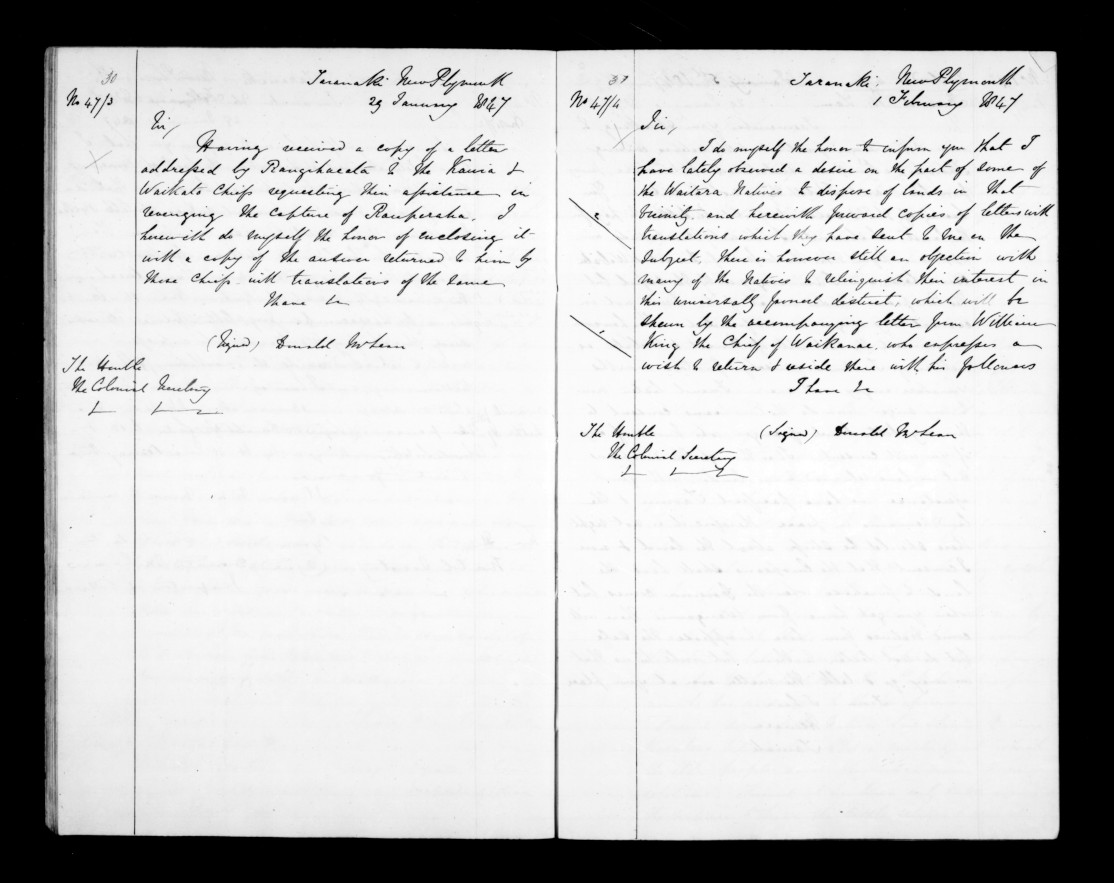 30
Taranaki New Plymouth
No 47/3
29 January 1847
Sir,
Having received a copy of a letter
addressed by Rangihaeata to the Kawia &
Waikato Chiefs requesting their assistance in
revenging the capture of Rauperaha. I
herewith do myself the honor of enclosing it
with a copy of the answer returned to him by
those Chiefs with translations of the same
I have &c
(Signed) Donald McLean
The Honble
The Colonial Secretary
&c &c
31
Taranaki New Plymouth
No 47/4
1 February 1847
Sir,
I do myself the honor to inform you that I
have lately observed a desire on the part of some of
the Waitara Natives to dispose of lands in that
vicinity, and herewith forward copies of letters with
translations which they have sent to me on the
subject, there is however still an objection with
many of the Natives to relinquish their interest in
this universally favored district; which will be
shewn by the accompanying letter from William
King the Chief of Waikanae, who expresses a
wish to return & reside there with his followers
I have &c
The Honble
(Signed) Donald McLean
The Colonial Secretary
&c &c